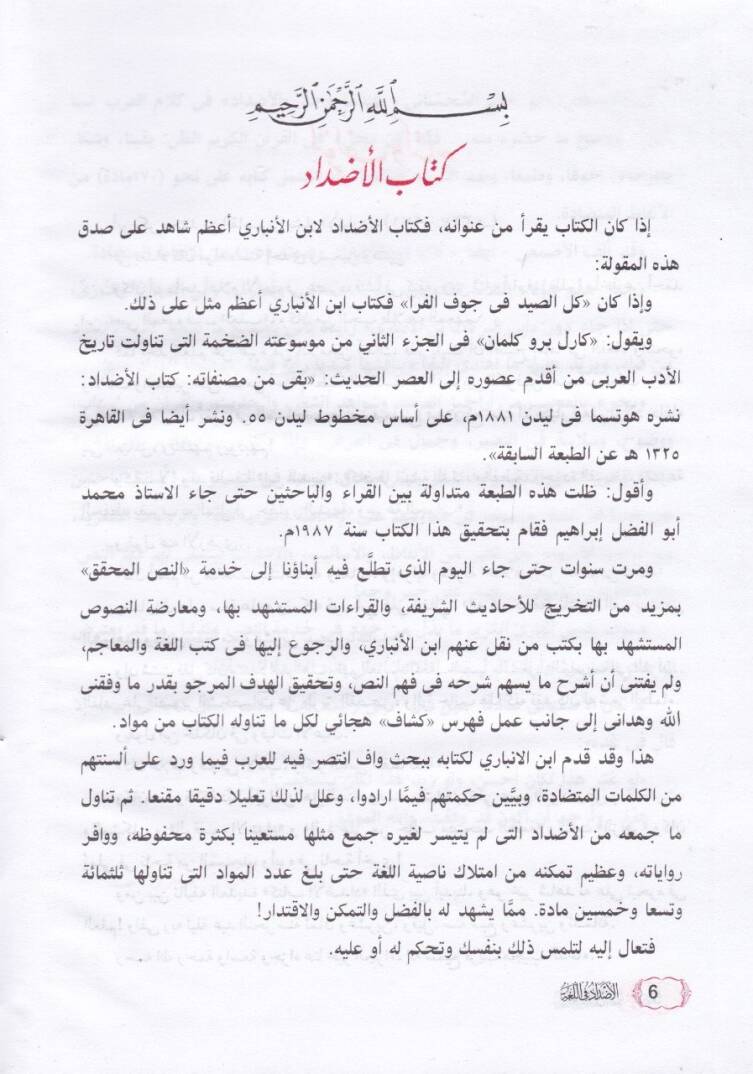 بِسْمِ ٱللَّهِ ٱلرَّحْمَٰنِ ٱلرَّحِيمِ
كتاب الأضداد
إذا كان الكتاب يقرأ من عنوانه، فكتاب الأضداد لابن الأنباري أعظم شاهد على صدق
هذه المقولة:
وإذا كان «كل الصيد فى جوف الفرا» فكتاب ابن الأنباري أعظم مثل على ذلك.
ويقول: «كارل برو كلمان» فى الجزء الثاني من موسوعته الضخمة التى تناولت تاريخ
الأدب العربى من أقدم عصوره إلى العصر الحديث: «بقى من مصنفاته: كتاب الأضداد:
نشره هوتسما فى ليدن ١٨٨١م، على أساس مخطوط ليدن ٥٥. ونشر أيضا فى القاهرة
١٣٢٥ هـ عن الطبعة السابقة».
وأقول: ظلت هذه الطبعة متداولة بين القراء والباحثين حتى جاء الاستاذ محمد
أبو الفضل إبراهيم فقام بتحقيق هذا الكتاب سنة ١٩٨٧م.
ومرت سنوات حتى جاء اليوم الذى تطلَّع فيه أبناؤنا إلى خدمة «النص المحقق»
بمزيد من التخريج للأحاديث الشريفة والقراءات المستشهد بها، ومعارضة النصوص
المستشهد بها بكتب من نقل عنهم ابن الأنباري، والرجوع إليها فى كتب اللغة والمعاجم،
ولم يفتنى أن أشرح ما يسهم شرحه فى فهم النص، وتحقيق الهدف المرجو بقدر ما وفقنى
الله وهدانى إلى جانب عمل فهرس «كشاف» هجائي لكل ما تناوله الكتاب من مواد.
هذا وقد قدم ابن الانباري لكتابه ببحث واف انتصر فيه للعرب فيما ورد على ألسنتهم
من الكلمات المتضادة، وبيَّين حكمتهم فيمَا ارادوا، وعلل لذلك تعليلا دقيقا مقنعا. ثم تناول
ما جمعه من الأضداد التى لم يتيسر لغيره جمع مثلها مستعينا بكثرة محفوظه، ووافر
رواياته، وعظيم تمكنه من امتلاك ناصية اللغة حتى بلغ عدد المواد التى تناولها ثلثمائة
وتسعا وخمسين مادة. ممَّا يشهد له بالفضل والتمكن والاقتدار!
فتعال إليه لتلمس ذلك بنفسك وتحكم له أو عليه.
6 الأضداد فى اللغة